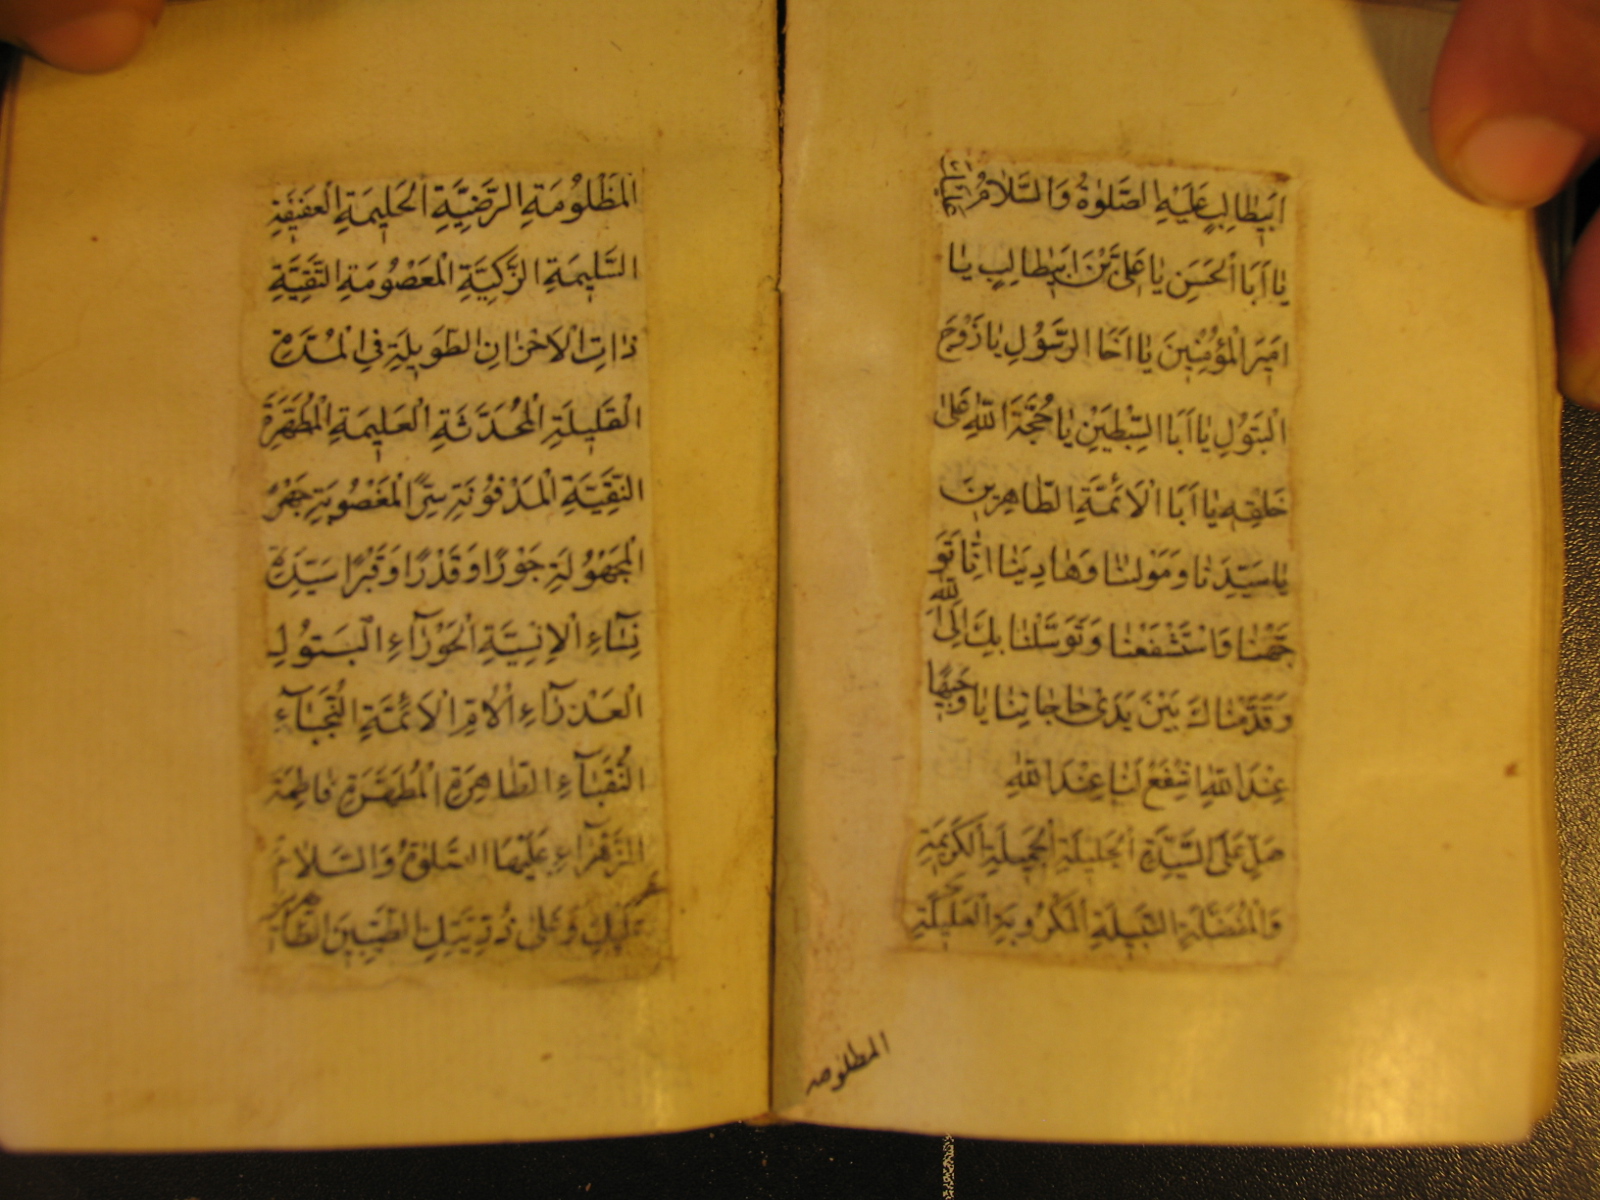 ابیطالِبٍ عَلَیْهِ الصَّلوٰةُ وَالسَّلامُ
یٰا اَبَا الْحَسَنِ یٰا عَلِیَّ بْنَ ابیطالِبٍ یٰا
امیرَ الْمُؤْمِنینَ یٰا اَخَا الرَّسُولِ یٰا زَوْجَ
الْبَتُولِ یٰا اَبَا السِّبْطَیْنِ یٰا حُجَّةَ اللّٰهِ عَلیٰ
خَلْقِهِ یٰا اَبَا الْاَئِمَّةِ الطّاهِرینَ
یٰا سَیِّدَنٰا وَمَوْلٰنٰا وَهٰادِیَنٰا اِنّٰا تَوَ
جَّهْنٰا وَاسْتَشْفَعْنٰا وَتَوَسَّلْنٰا بِكَ اِلَی اللّٰهِ
وَقَدَّمْنٰاكَ بَیْنَ یَدَیْ حٰاجٰاتِنٰا یٰا وَجیهًا
عِنْدَ اللّٰهِ اشْفَعْ لَنٰا عِنْدَ اللّٰهِ
صَلِّ عَلَی السَّیِّدَةِ الْجَلیلَةِ الْجَمیلَةِ الْكَریمَةِ
النَّبیلَةِ الْمَكْرُوبَةِ الْعَلیلَةِ
المظلومه
الْمَظْلُومَةِ الرَّضِیَّةِ الْحَلیمَةِ الْعَفیفَةِ
السَّلیمَةِ الزَّكِیَّةِ الْمَعْصُومَةِ التَّقِیَّةِ
ذاتِ الْاَحْزٰانِ الطَّویلَةِ فِی الْمُدَّةِ
الْقَلیلَةِ الْمُحَدَّثَةِ الْعَلیمَةِ الْمُطَهَّرَةِ
النَّقِیَّةِ الْمَدْفُونَةِ سِرًّا الْمَغْصُوبَةِ جَهْرً
الْمَجْهُولَةِ جَوْرًا وَقَدْرًا وَقَبْرًا سَیِّدَةِ
نِسٰاءِ الْاِنْسِیَّةِ الْحَوْرٰآءِ الْبَتُولِ
الْعَذْرٰآءِ الْاُمِّ الْاَئِمَّةِ النُّجَبٰآءِ
النُّقَبٰآءِ الطّاهِرَةِ الْمُطَهَّرَةِ فاطِمَةَ
الزَّهْرٰآءِ عَلَیْهَا الصَّلوٰةُ وَالسَّلامُ
عَلَیْكِ وَعَلیٰ ذُرِّیَّتِكِ الطَّیِّبینَ الطّاهِرینَ